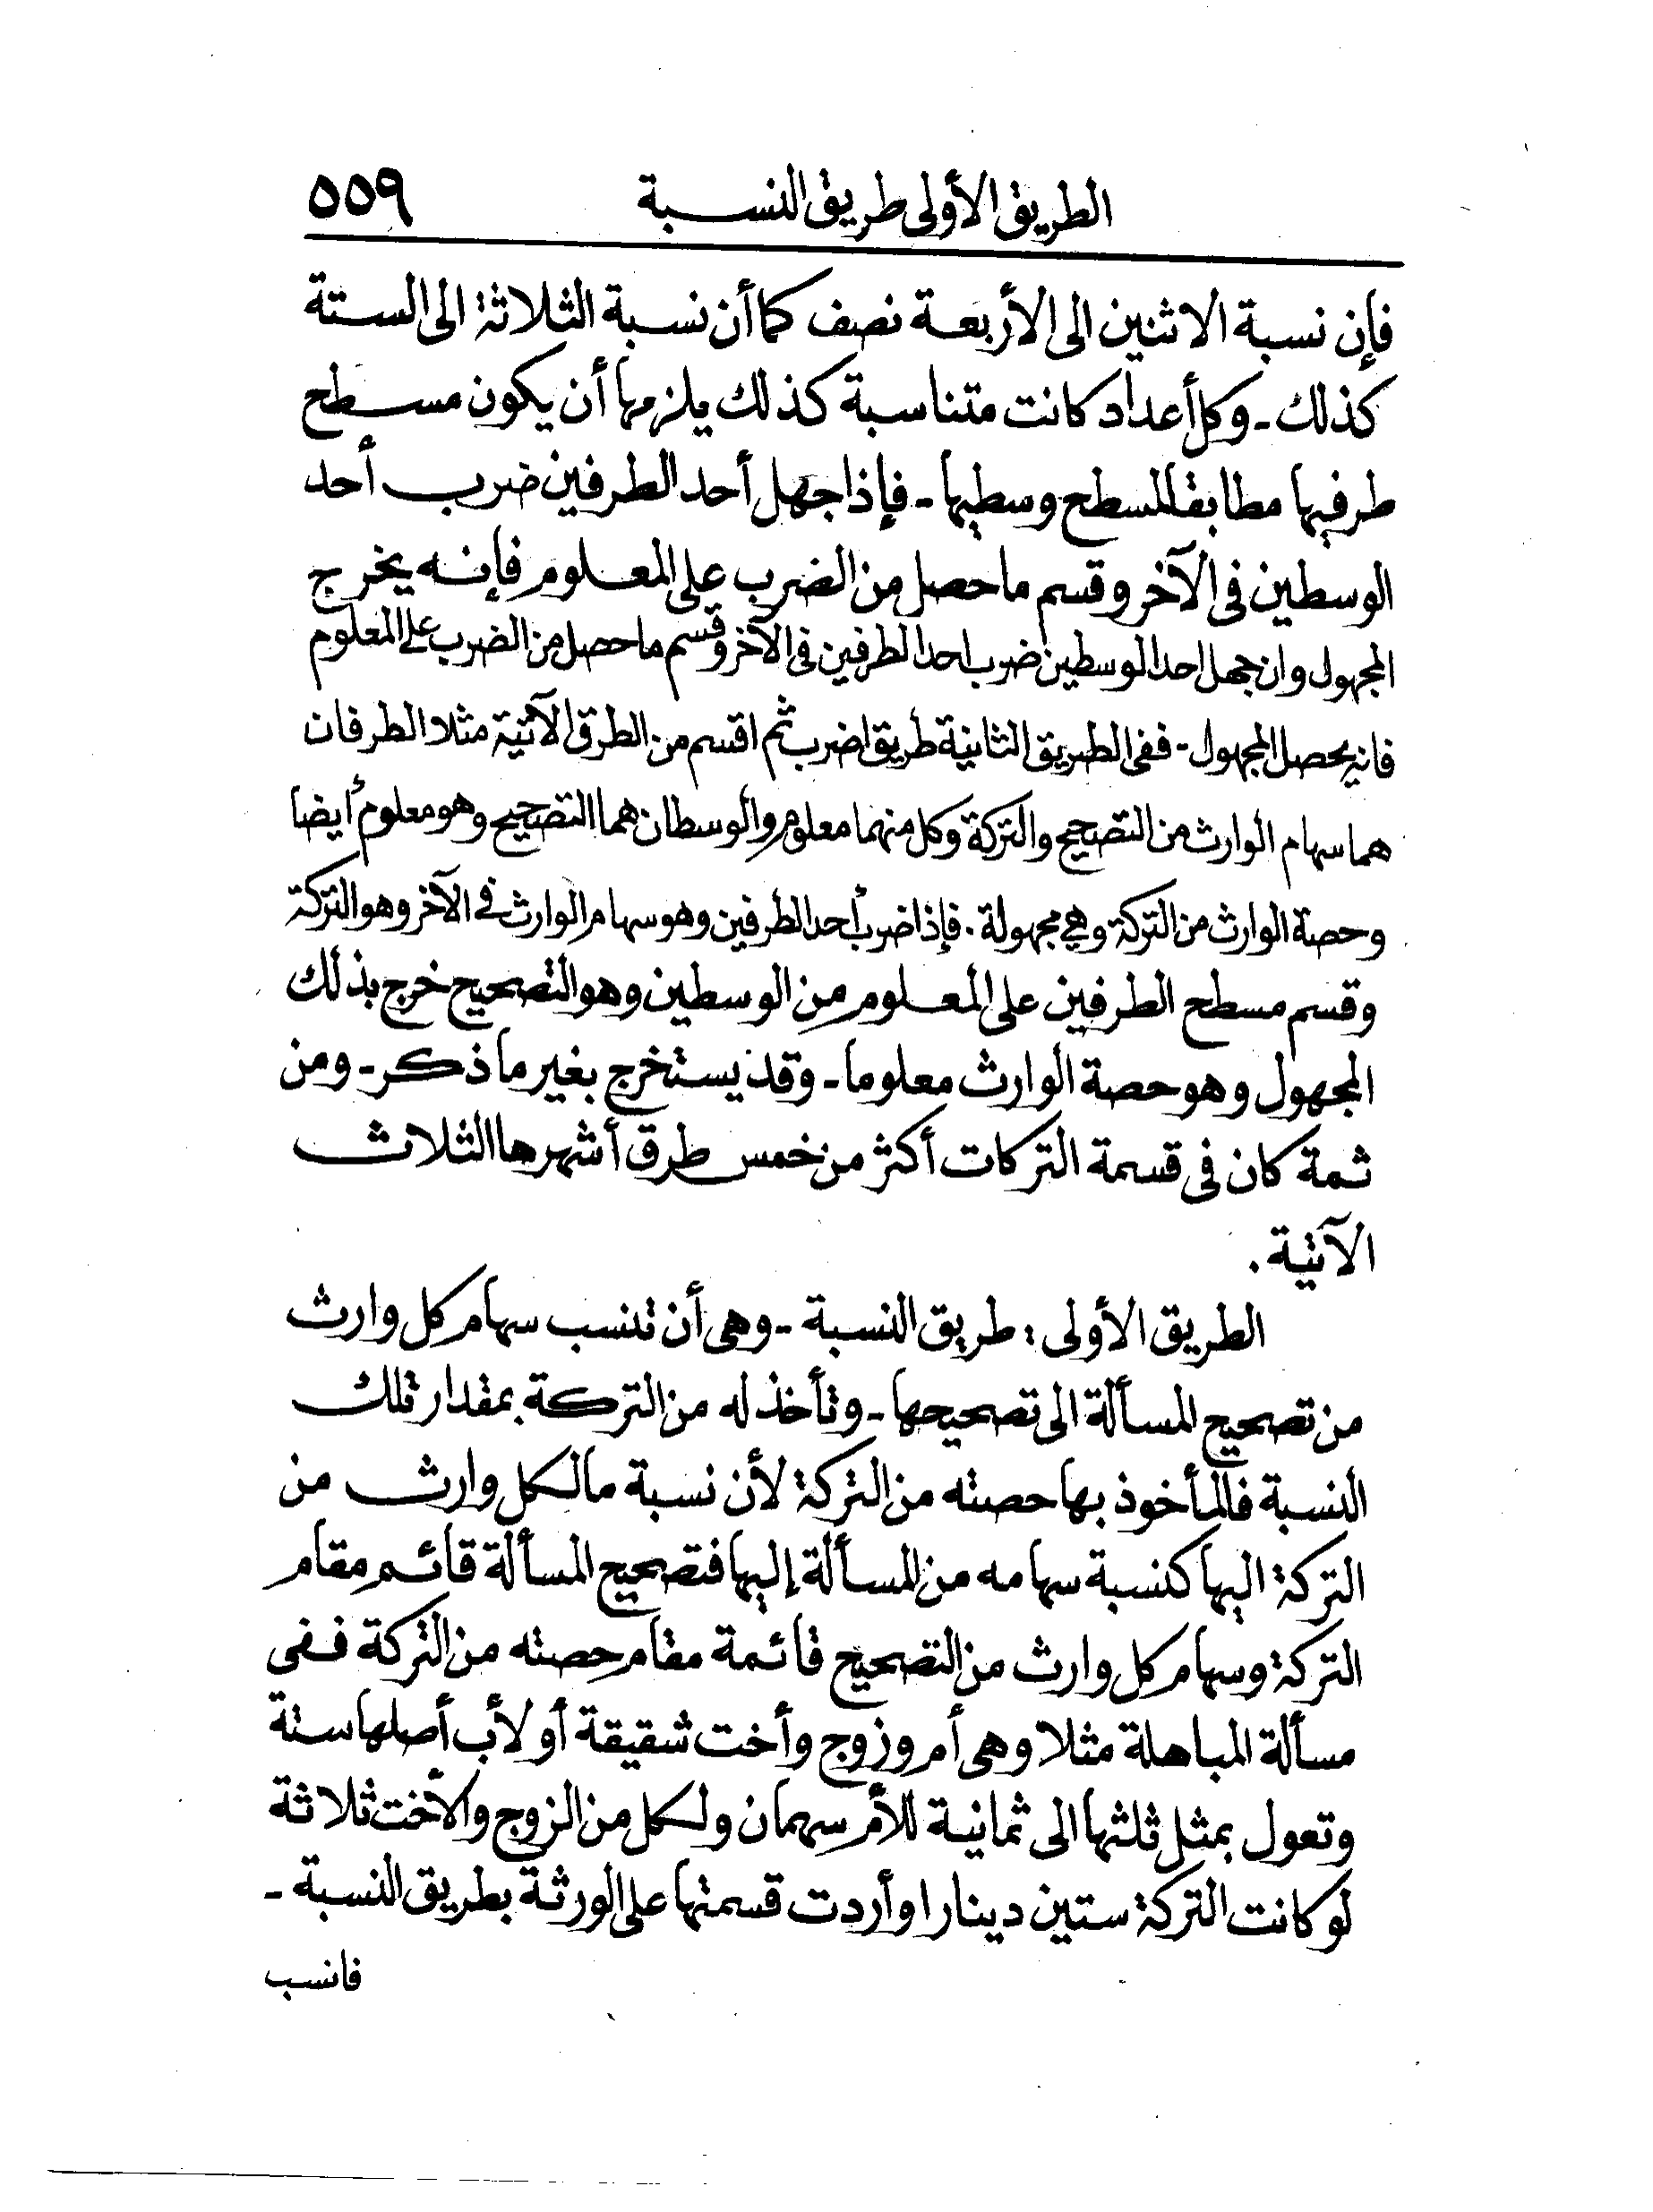 الطريق الأولى طريق النسبة ٥٥٩
فإن نسبة الاثنين الى الأربعة نصف كما أن نسبة الثلاثة الى الستة
كذلك - وكل أعداد كانت متناسبة كذلك يلزمها أن يكون مسطح
طرفيها مطابقا لمسطح وسطيها - فإذا جهل أحد الطرفين ضرب أحد
الوسطين فى الآخر وقسم ما حصل من الضرب على المعلوم فإنه يخرج
المجهول وان جهل احد الوسطين ضرب احد الطرفين فى الآخر وقسم ما حصل من الضرب على المعلوم
فانه يحصل المجهول - ففى الطريق الثانية طريق اضرب ثم اقسم من الطرق الآتية مثلا الطرفان
هما سهام الوارث من التصحيح والتركة وكل منهما معلوم والوسطان هما التصحيح وهو معلوم أيضا
وحصة الوارث من التركة وهي مجهولة . فإذا ضرب أحد الطرفين وهو سهام الوارث في الآخر وهو التركة
وقسم مسطح الطرفين على المعلوم من الوسطين وهو التصحيح خرج بذلك
المجهول وهو حصة الوارث معلوما - وقد يستخرج بغير ما ذكر - ومن
ثمة كان فى قسمة التركات أكثر من خمس طرق أشهرها الثلاث
الآتية .
الطريق الأولى : طريق النسبة - وهى أن تنسب سهام كل وارث
من تصحيح المسألة الى تصحيحها - وتأخذ له من التركة بمقدار تلك
النسبة فالمأخوذ بها حصته من التركة لأن نسبة ما لكل وارث من
التركة اليها كنسبة سهامه من المسألة إليها فتصحيح المسألة قائم مقام
التركة وسهام كل وارث من التصحيح قائمة مقام حصته من التركة ففى
مسألة المباهلة مثلا وهى أم وزوج وأخت شقيقة أو لأب أصلها ستة
وتعول بمثل ثلثها الى ثمانية للأم سهمان ولكل من الزوج والأخت ثلاثة
لو كانت التركة ستين دينارا وأردت قسمتها على الورثة بطريق النسبة -
فانسب